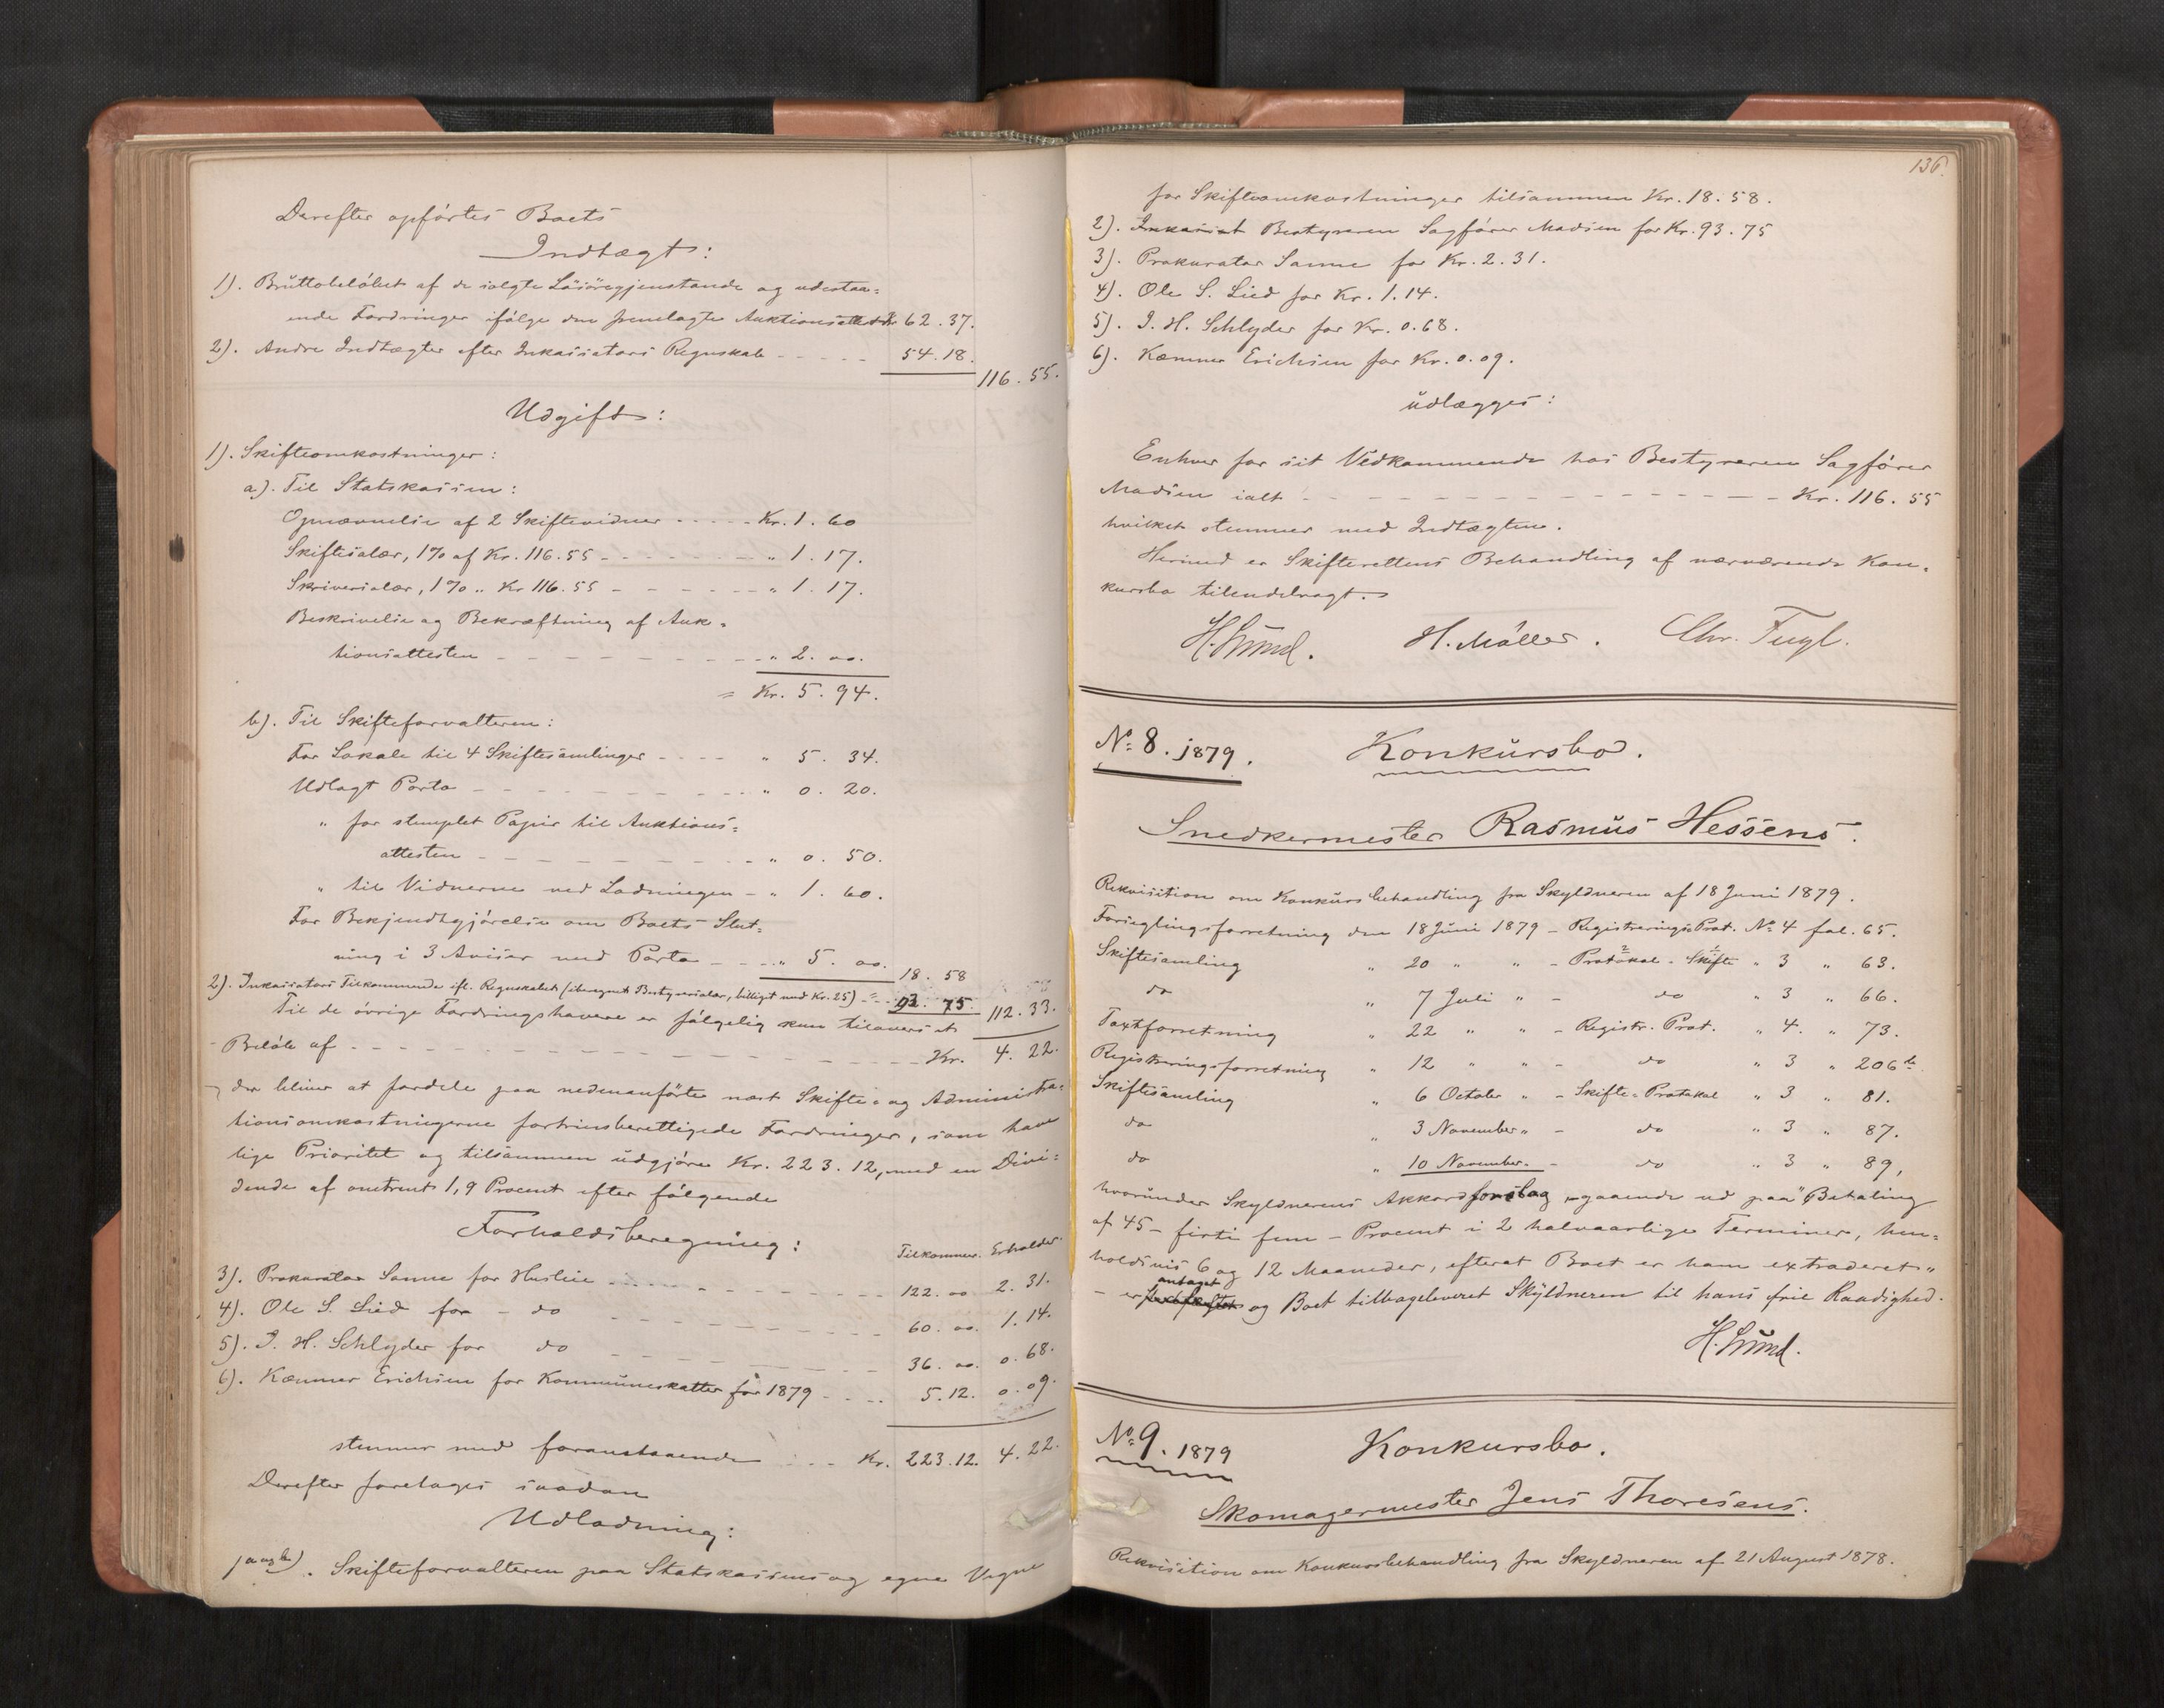 Derefter opførtes Boets
Indtægt:
1). Brüttobeløbet af de solgte Løsøregjenstande og udestaa=
ende Fordringer ifølge den fremlagte Auktionsattest Kr. 62.37.
2). Andre Indtægter efter Inkassators Regnskab - - - - - 54.18.
116.55.
Udgift:
1). Skifteomkostninger:
a). Til Statskassen:
Opnævnelse af 2 Skiftevidner - - - - - Kr. 1. 60
Skiftesalær, 1% af Kr. 116.55 - - - - - - - " 1. 17.
Skriversalær, 1% " Kr 116.55 - - - - - - - " 1. 17.
Beskrivelse og Bekræftning af Auk=
tionsattesten - - - - - - - - - - " 2. oo.
= Kr. 5. 94.
b). Til Skifteforvalteren:
For Lokale til 4 Skiftesamlinger - - - - " 5. 34.
Udlagt Porto - - - - - - - - - - " 0. 20.
" for stemplet Papir til Auktions=
attesten - - - - - - - - - - " 0. 50.
" til Vidnerne ved Lodningen - " 1. 60.
For Bekjendtgjørelse om Boets Slut=
ning i 3 Aviser med Porto - - - " 5. oo. 18. 58
2). Inkassators Tilkommende ifl. Regnskabet (iberegnet Bestyrersalær, billiget med Kr. 25) - - 93. 75. 112.33.
Til de øvrige Fordringshavere er følgelig kun tilovers et
Beløb af - - - - - - - - - - - - Kr. 4. 22.
der bliver at fordele paa nedenanførte næst Skifte- og Administra=
tionsomkostningerne fortrinsberettigede Fordringer, som have
lige Prioritet og tilsammen udgjøre Kr. 223.12, med en Divi=
dende af omtrent 1,9 Procent efter følgende
Forholdsberegning:
Tilkommer. Erholder.
3). Prokurator Sanne for Husleie - - - - - - - 122. oo 2. 31.
4). Ole S. Lied for - do - - - - - - - 60. oo. 1. 14.
5). J. H. Schlyder for do - - - - - - - 36. oo. 0. 68.
6). Kæmner Erichsen for Kommuneskatter for 1879 - - - - 5. 12. 0. 09.
stemmer med foranstaaende - - - Kr. 223.12. 4. 22
Derefter foretages saadan
Udlodning:
1 a og b). Skifteforvalteren paa Statskassens og egne Vegne
136.
for Skifteomkostninger tilsammen Kr. 18.58.
2). Bestyreren Sagfører Madsen for Kr. 93.75
3). Prokurator Sanne for Kr. 2.31.
4). Ole S. Lied for Kr. 1.14.
5). J. H. Schlyder for Kr. 0.68.
6). Kæmner Erichsen for Kr. 0.09.
üdlægges:
Enhver for sit Vedkommende hos Bestyreren Sagfører
Madsen ialt - - - - - - - - - - - - Kr. 116.55
hvilket stemmer med Indtægten.
Hermed er Skifterettens Behandling af nærværende Kon=
kursbo tilendebragt.
H. Lund. H. Möller. Chr. Fugl.
No 8. 1879. Konkürsbo.
Snedkermester Rasmüs Hessens.
Rekvisition om Konkürsbehandling fra Skyldneren af 18 Juni 1879.
Forseglingsforretning den 18 Jüni 1879 - Registrerings-Prot. No 4 fol. 65.
Skiftesamling " 20 " " - Protokol - Skifte " 3 " 63.
do " 7 Juli " - do " 3 " 66.
Taxtforretning " 22 " " - Registr. Prot. " 4. " 73.
Registreringsforretning " 12 " " - do " 3 " 206 b.
Skiftesamling " 6 October " - Skifte-Protokol " 3 " 81.
do " 3 November " - do " 3 " 87.
do " 10 November. - do " 3 " 89,
hvoründer Skyldnerens Akkordforslag, gaaende ud paa "Betaling
af 45 - firti fem - Procent i 2 halvaarlige Terminer, hen=
holdsvis 6 og 12 Maaneder, efterat Boet er ham extraderet"
antaget
- er og Boet tilbageleveret Skÿldneren til hans frie Raadighed.
H. Lund.
No 9. 1879 Konkursbo.
Skomagermester Jens Thoresens.
Rekvisition om Konkursbehandling fra Skyldneren af 21 August 1878.